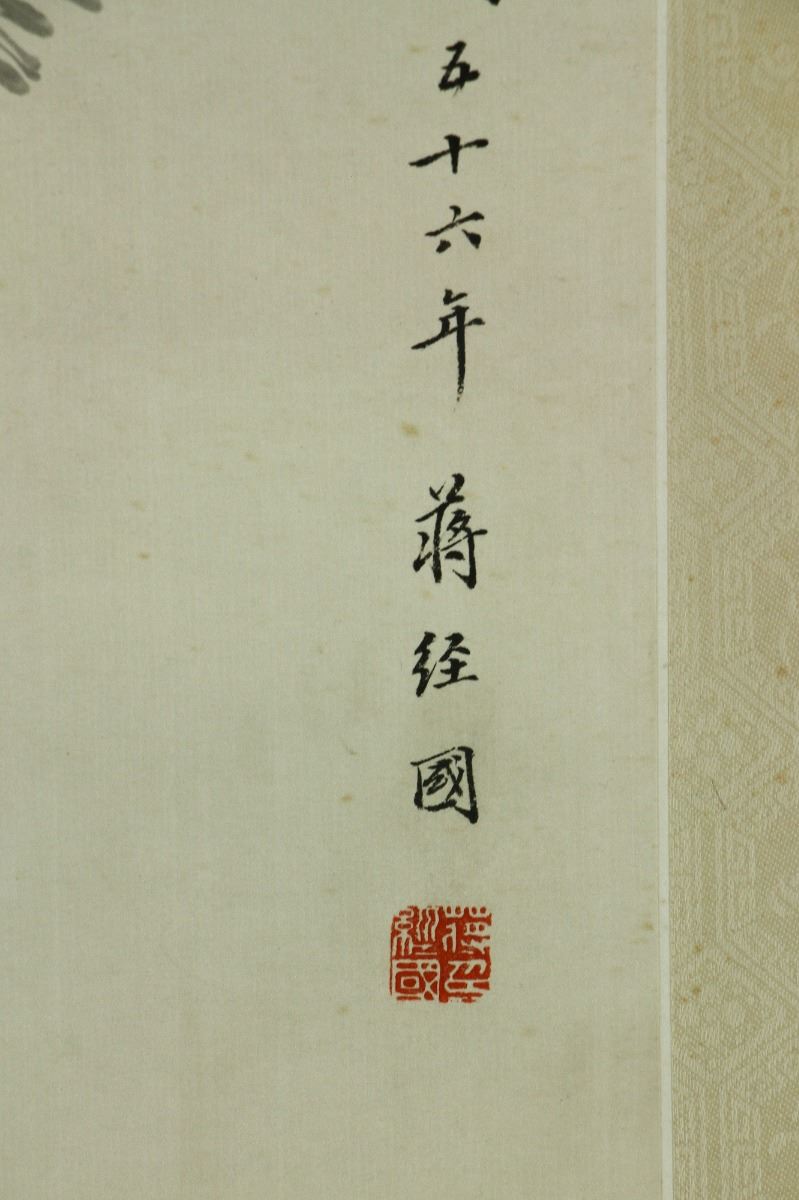 五十六年 蔣经國
蔣經國印